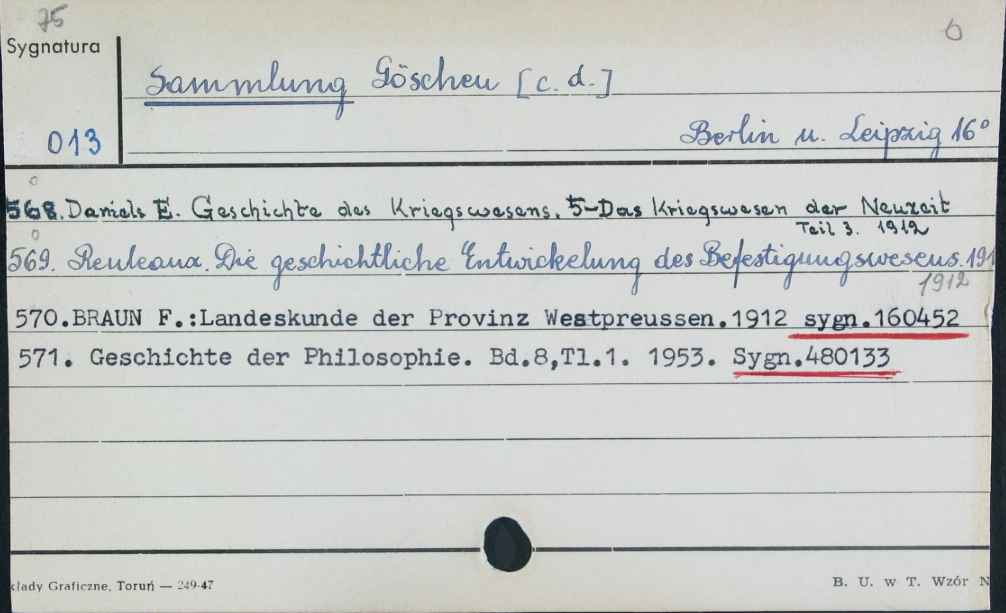 75
6
Sygnatura
Sammlung Göschen [c. d.]
013
Berlin u. Leipzig 16°
568. Daniels E. Geschichte des Kriegswesens. 5-Das Kriegswesen der Neuzeit
Teil 3. 1912
569. Reuleaux. Die geschichtliche Entwickelung des Befestigungswesens. 191
1912
570. BRAUN F.: Landeskunde der Provinz Westpreussen. 1912 sygn. 160452
571. Geschichte der Philosophie. Bd.8,Tl.1. 1953. Sygn. 480133
kłady Graficzne, Toruń — 249-47
B. U. w T. Wzór N